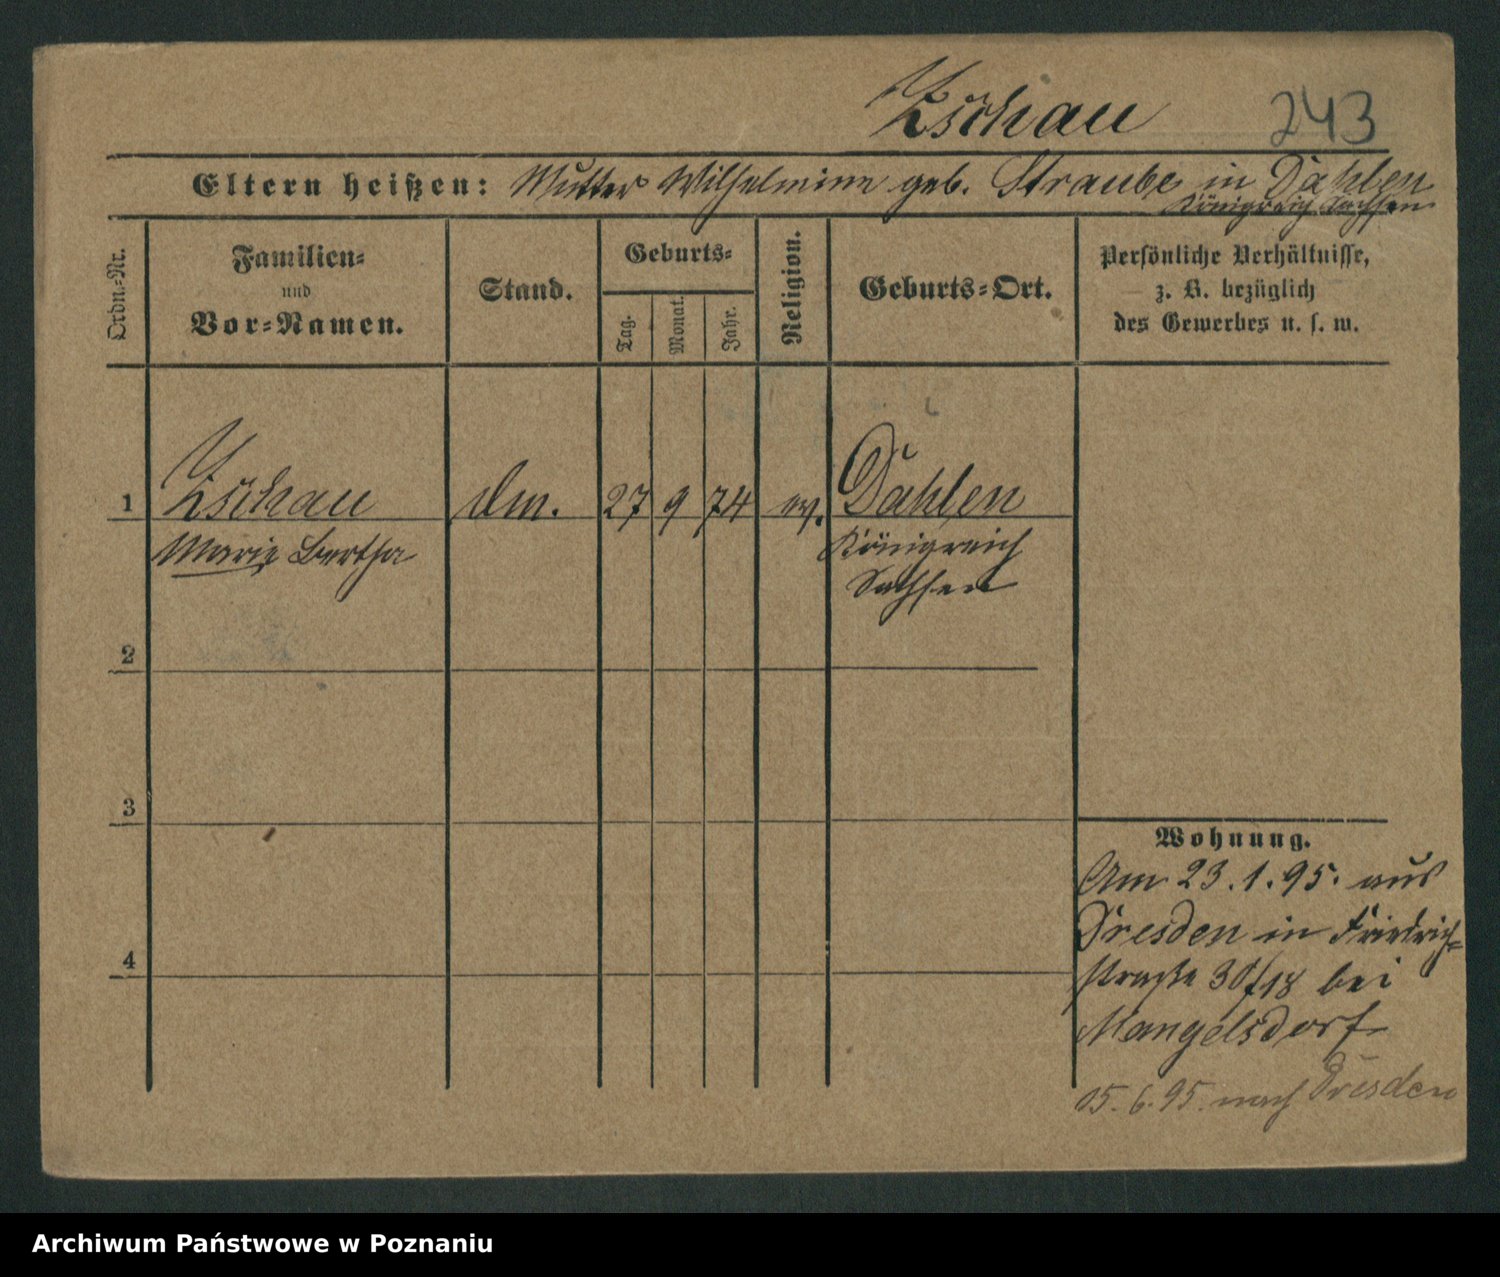 Zschau 243
Eltern heißen: Mutter Wilhelmine geb. Straube in Dahlen
Königreich Sachsen
Ordn.-Nr.
Familien-
und
Vor-Namen.
Stand.
Geburts-
Tag.
Monat.
Jahr.
Religion.
Geburts-Ort.
Persönliche Verhältnisse,
z. B. bezüglich
des Gewerbes u. s. w.
1 Zschau 27 9 74 ev. Dahlen
Marie Bertha Königreich
Sachsen
2
3
4
Wohnung.
Am 23.1.95. aus
Dresden in Friedrich-
straße 30/18 bei
Mangelsdorf
15.6.95. nach Dresden
Archiwum Państwowe w Poznaniu